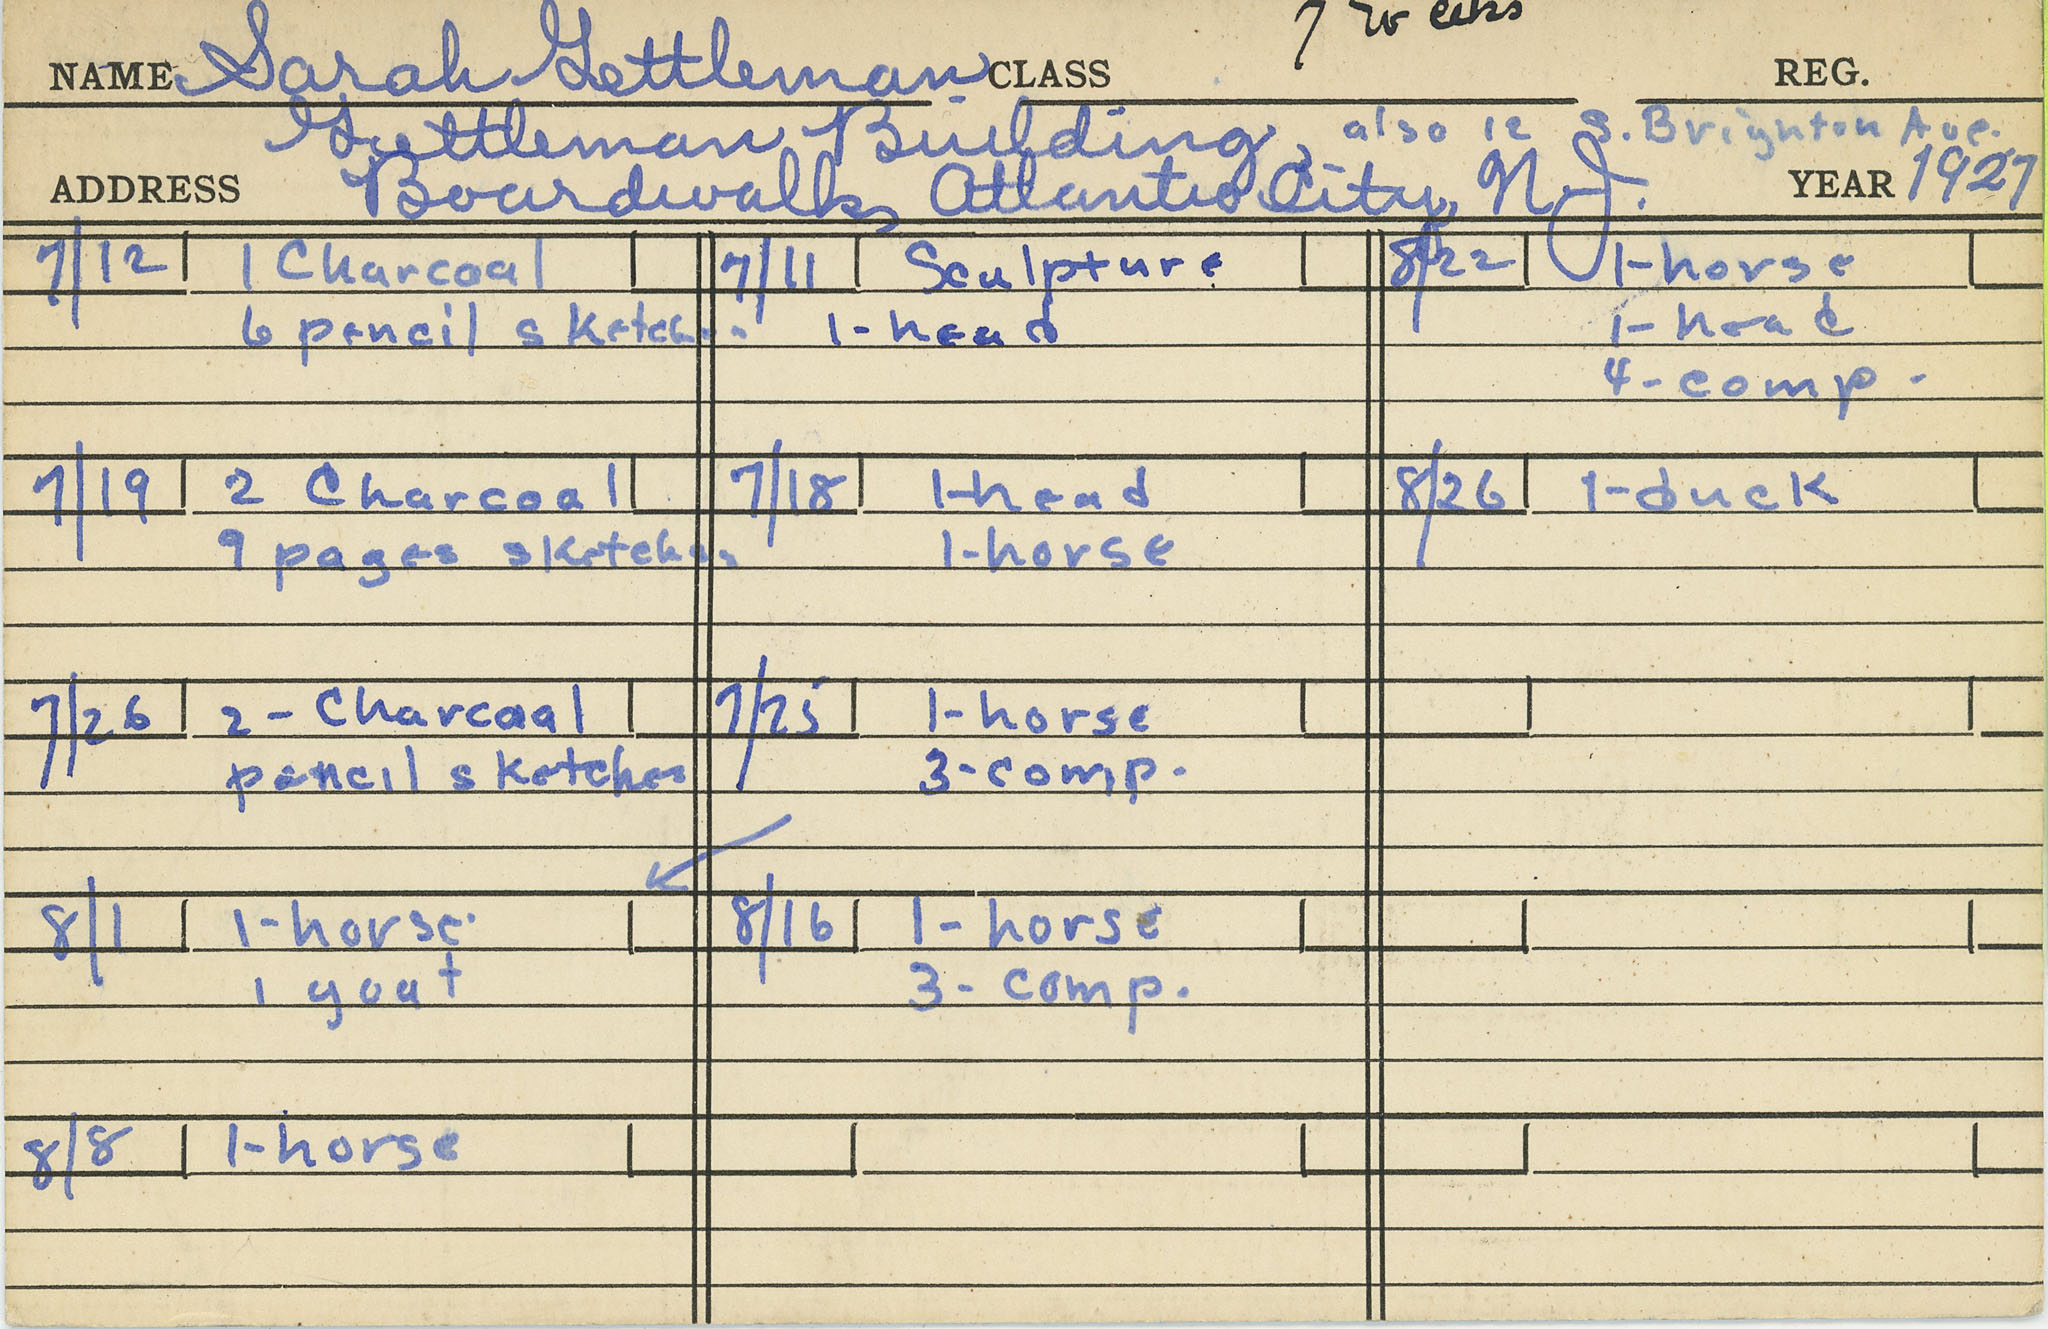 7 weeks
NAME Sarah Gettleman CLASS REG.
Gettleman Building, also 12 S. Brighton Ave.
ADDRESS Boardwalk, Atlantic City, N.J. YEAR 1927
7/12 1 Charcoal
6 pencil sketches
7/19 2 Charcoal
9 pages sketches
7/26 2 - Charcoal
pencil sketches
8/1 1-horse
1 goat
8/8 1-horse
7/11 Sculpture
1-head
7/18 1-head
1-horse
7/25 1-horse
3-comp.
8/16 1-horse
3-comp.
8/22 1-horse
1-head
4-comp.
8/26 1-duck